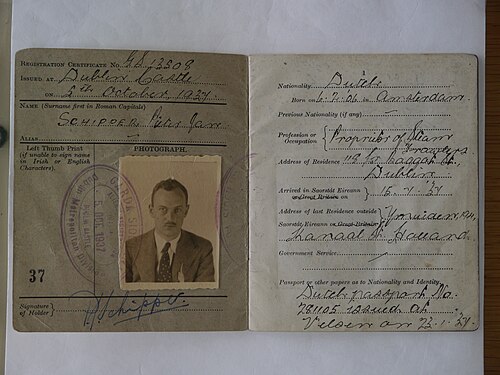 REGISTRATION CERTIFICATE No. 13508
ISSUED AT Dublin Castle
ON 5th October 1937
NAME (Surname first in Roman Capitals)
SCHIPPER, Jan
ALIAS
Left Thumb Print
(if unable to sign name
in Irish or English
Characters).
PHOTOGRAPH.
5 OCT 1937
37
Signature
of Holder
Schipper
Nationality Dutch
Born on in Amsterdam
Previous Nationality (if any)
Profession or
Occupation
Proprietor of Steam
Trawlers
Address of Residence Baggot St.
Dublin
Arrived in Saorstát Éireann
on
Address of last Residence outside Ymuiden
Saorstát Éireann
Kanaal St. Holland
Government Service
Passport or other papers as to Nationality and Identity.
Dutch passport No.
781105 issued at
Velsen on